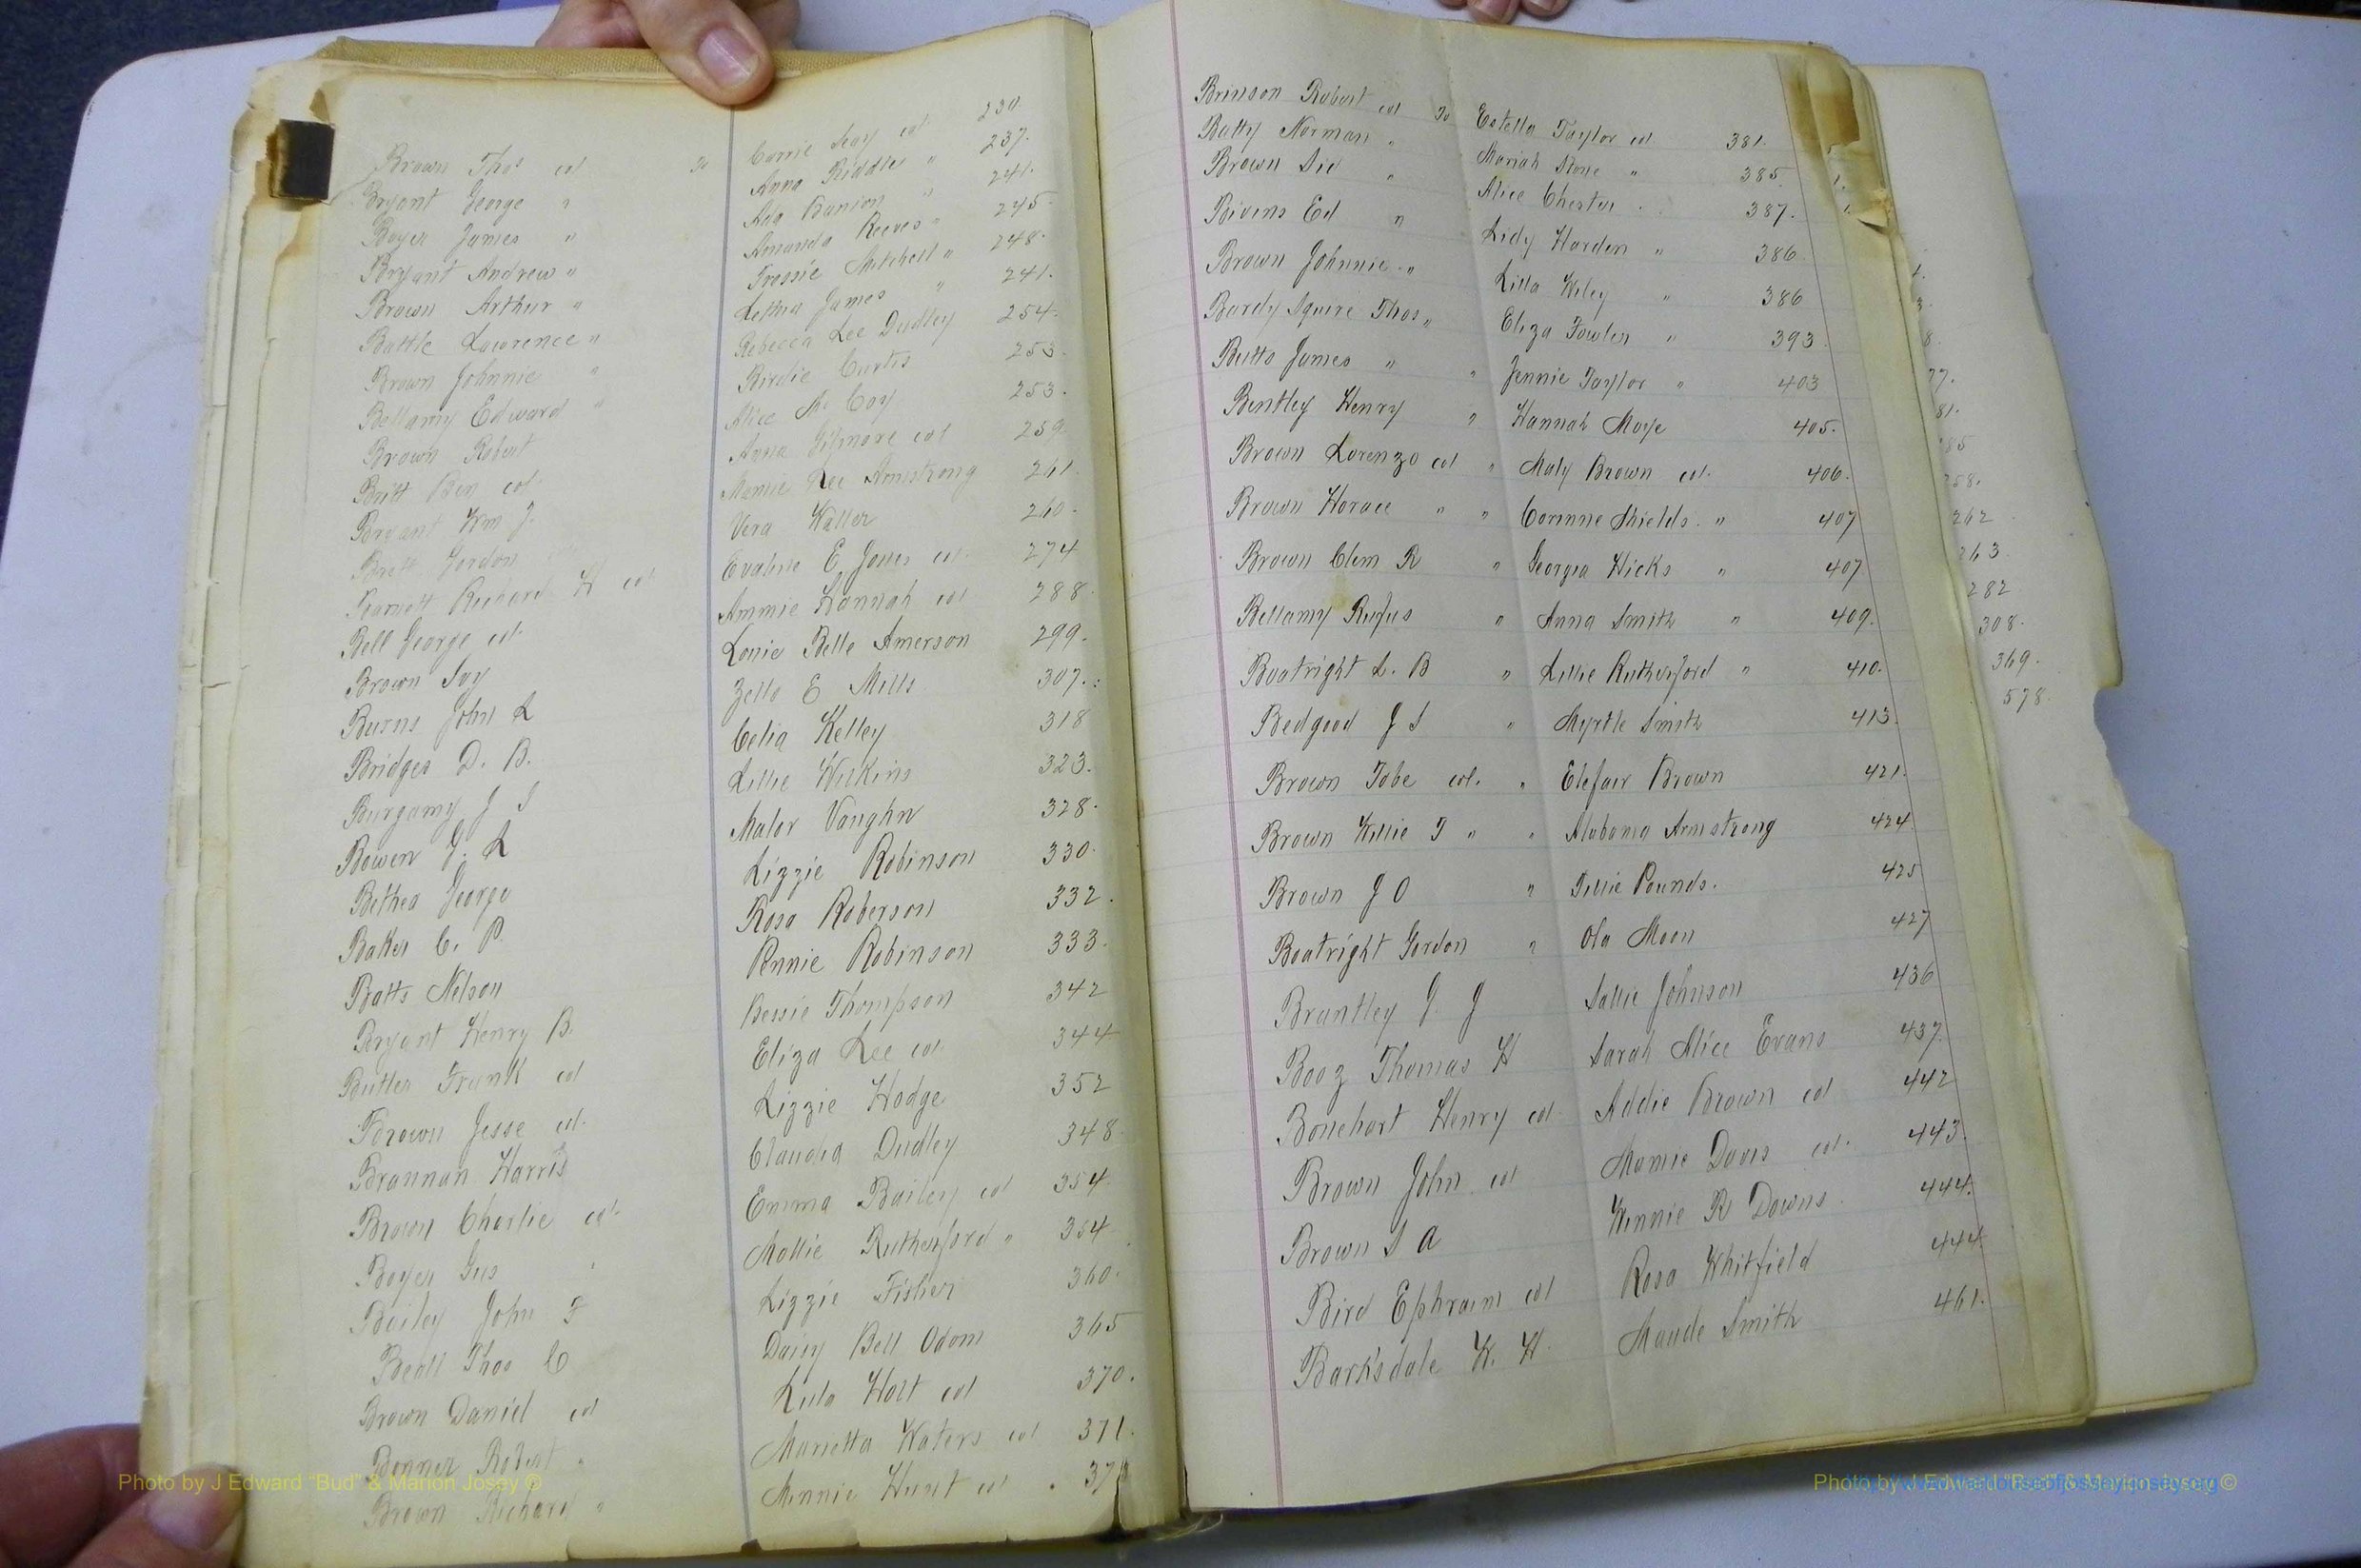 Brown Thos col to Carrie Seay col 230.
Bryant George " Anna Riddle " 237.
Boyer James " Ada Banion " 241.
Bryant Andrew " Amanda Reeves " 245.
Brown Arthur " Mitchell " 248.
Battle Lawrence " Letha James " 241.
Brown Johnnie " Rebecca Lee Dudley 254.
Bellamy Edward " Birdie Curtis 253.
Brown Robert Alice McCoy 253.
Britt Ben col Anna Gilmore col 259
Bryant Wm J. Mamie Lee Armstrong 261.
Gordon Vera Waller 260.
Richard H col Evaline E Jones col 274
Bell George col. Ammie Hannah col 288.
Brown Ivy Lonie Belle Amerson 299.
Burns John L Zella E Mills 307.
Bridges D. B. Celia Kelley 318
Burgamy J S Lillie Wilkins 323.
Bowen J. L Malor Vaughn 328.
Bethea George Lizzie Robinson 330.
Baker C. P. Rosa Roberson 332.
Batts Nelson Pennie Robinson 333.
Bryant Henry B. Bessie Thompson 342
Butler Frank col Eliza Lee col. 344
Brown Jesse col. Lizzie Hodge 352
Brannan Harris Claudia Dudley 348.
Brown Charlie col. Emma Bailey col 354.
Boyer Gus Mollie Rutherford " 354
Bailey John F Lizzie Fisher 360.
Beall Thos C Daisy Bell Odom 365
Brown Daniel col Lula Holt col 370.
Bonner Robert " Marietta Waters col 371.
Brown Richard " Minnie Hunt col
Brinson Robert col To Estella Taylor col. 381.
Batty Norman " Mariah Stone " 385.
Brown Sid " Alice Chester 387.
Bivins Ed " Lidy Harden " 386.
Brown Johnnie " Lilla Wiley " 386
Bardy Squire Thos " Eliza Fowler " 393.
Butts James " " Jennie Taylor " 403
Bentley Henry " Hannah Moye 405.
Brown Lorenzo col " Maly Brown col. 406.
Brown Horace " " Corinne Shields. " 407
Brown Clem R " Georgia Hicks " 407
Bellamy Rufus " Anna Smith " 409.
Boatright L. B " Lillie Rutherford " 410.
Bedgood J S " Myrtle Smith 413.
Brown Tobe col. " Elefair Brown 421.
Brown Willie T " " Alabama Armstrong 424.
Brown J O " Tillie Pounds. 425
Boatright Gordon " Ola Moon 427
Brantley J. J Sallie Johnson 436
Booz Thomas H Sarah Alice Evans 437.
Bonehart Henry col. Addie Brown col 442
Brown John col Mamie Davis col. 443.
Brown S A Winnie R Downs 444.
Bird Ephraim col Rosa Whitfield 444.
Barksdale W. H. Maude Smith 461.
262
263.
282
308.
369.
578.
Photo by J Edward "Bud" & Marion Josey ©
Photo by J Edward "Bud" & Marion Josey ©